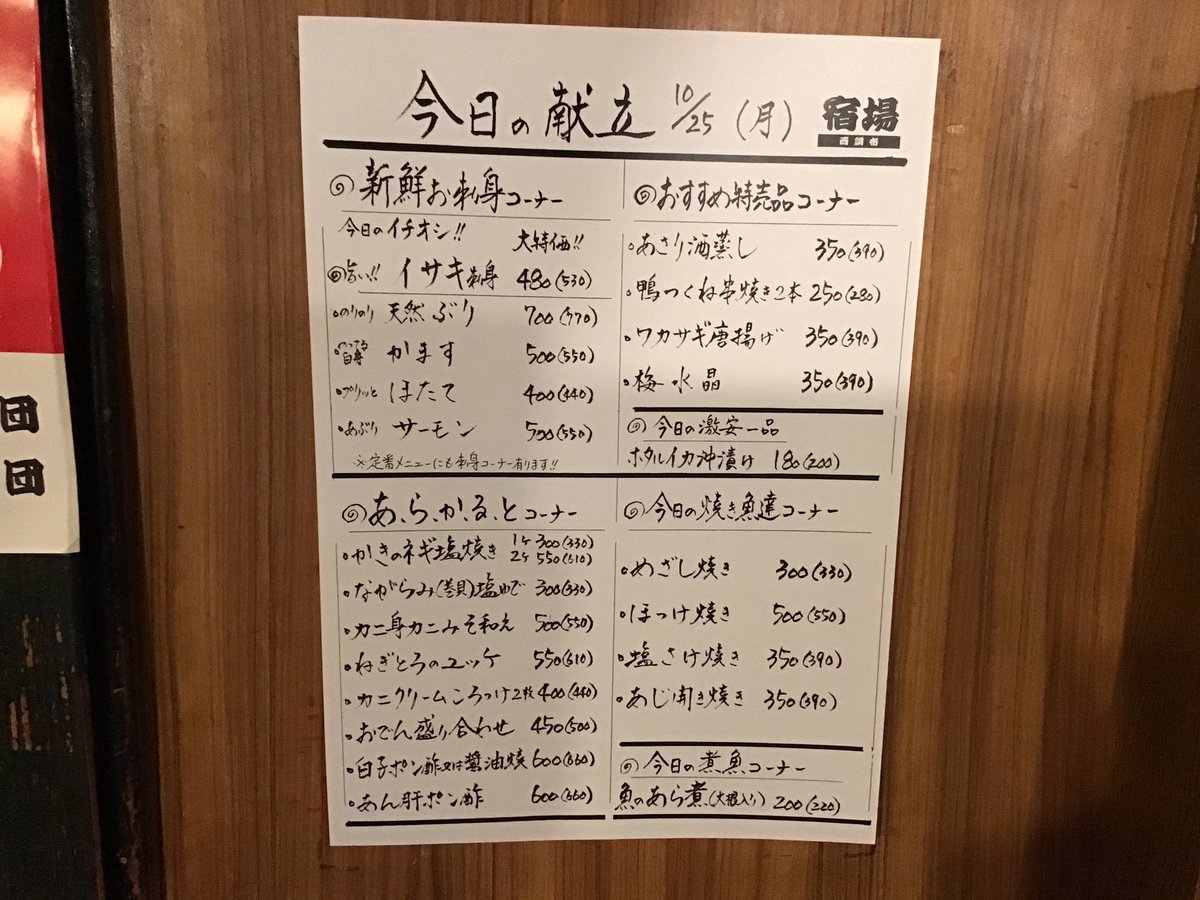 今日の献立 10/25 (月)
宿場
西調布
新鮮お刺身コーナー
今日のイチオシ!! 大特価!!
旨い!! イサキ刺身 480(530)
のりのり 天然ぶり 700(770)
のってる白身 かます 500(550)
プリッと ほたて 400(440)
あぶり サーモン 500(550)
※定番メニューにも刺身コーナー有ります!!
おすすめ特売品コーナー
・あさり酒蒸し 350(390)
・鴨つくね串焼き2本 250(280)
・ワカサギ唐揚げ 350(390)
・梅水晶 350(390)
今日の激安一品
ホタルイカ沖漬け 180(200)
あ、ら、か、る、とコーナー
・かきのネギ塩焼き 1ケ 300(330)
2ケ 550(610)
・ながらみ(巻貝)塩ゆで 300(330)
・カニ身カニみそ和え 500(550)
・ねぎとろのユッケ 550(610)
・カニクリームころっけ2枚 400(440)
・おでん盛り合わせ 450(500)
・白子ポン酢又は醤油焼 600(660)
・あん肝ポン酢 600(660)
今日の焼き魚達コーナー
・めざし焼き 300(330)
・ほっけ焼き 500(550)
・塩さけ焼き 350(390)
・あじ開き焼き 350(390)
今日の煮魚コーナー
魚のあら煮(大根入り) 200(220)
団
団